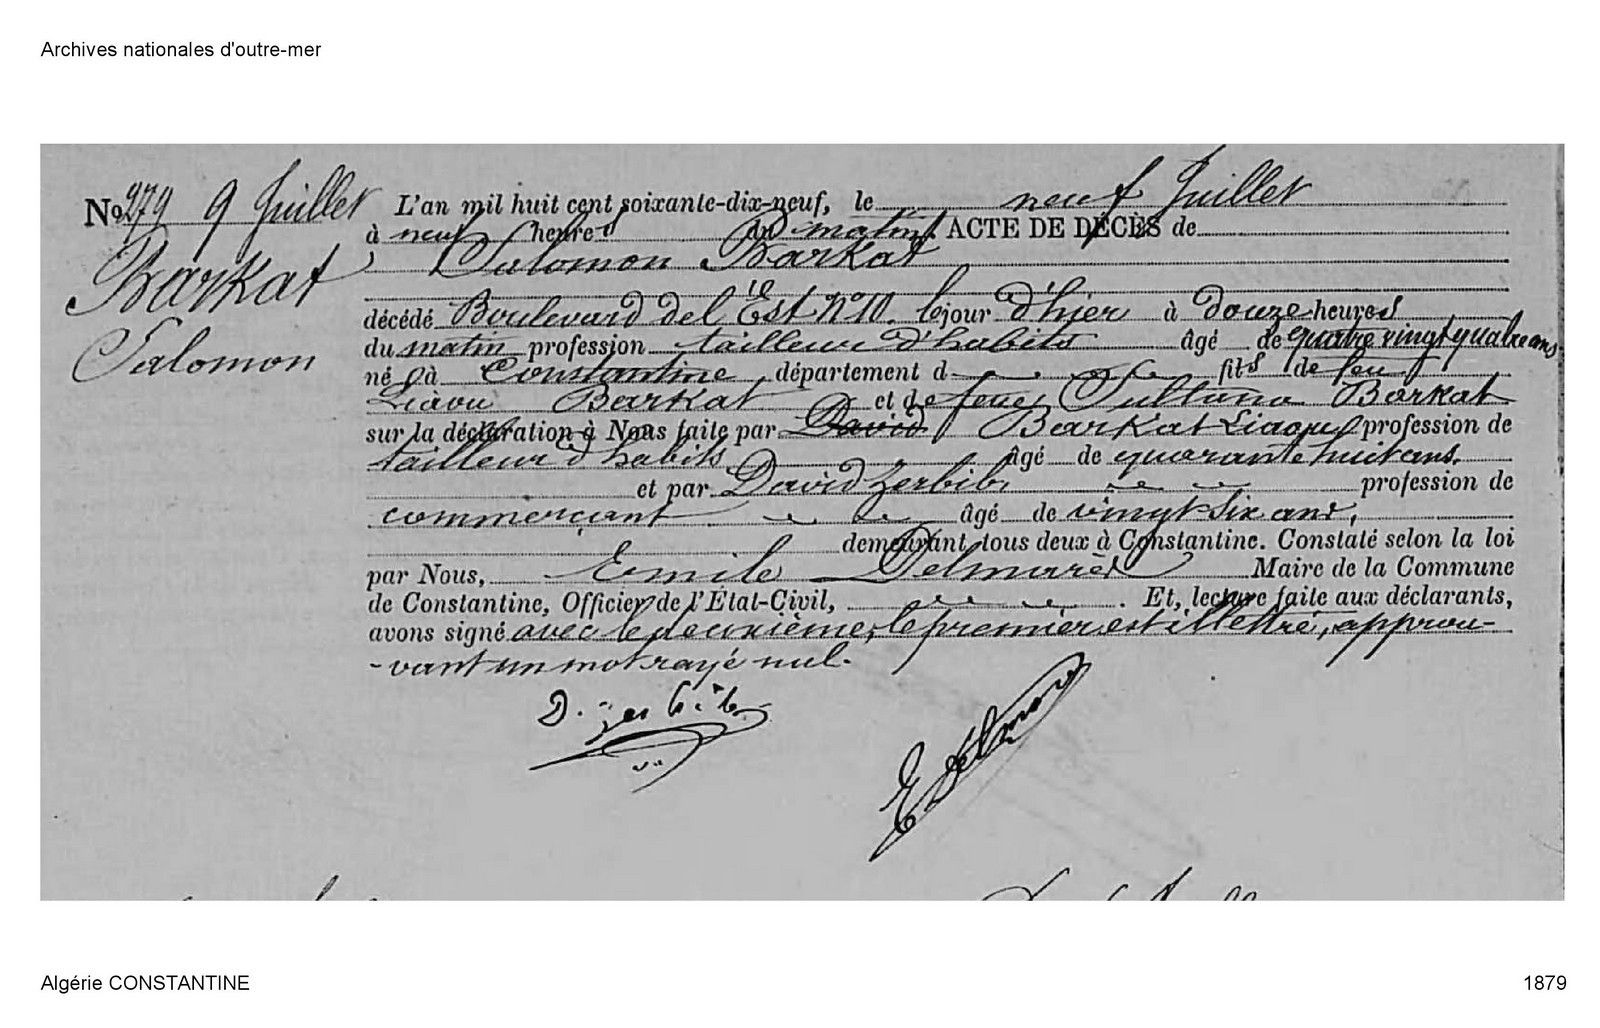 Archives nationales d'outre-mer
No 279 9 Juillet
Barkat
Salomon
L'an mil huit cent soixante-dix-neuf, le neuf Juillet
à neuf heures du matin, ACTE DE DÉCÈS de
Salomon Barkat
décédé Boulevard de l'Est N° 10, le jour d'hier à douze heures
du matin profession tailleur d'habits âgé de quatre vingt quatre ans
né à Constantine, département d fils de feu
Liaou Barkat et de feue Sultana Barkat
sur la déclaration à Nous faite par David Barkat Liaou profession de
tailleur d'habits âgé de quarante huit ans.
et par David Zerbib profession de
commerçant âgé de vingt six ans,
demeurant tous deux à Constantine. Constaté selon la loi
par Nous, Emile Delmarès Maire de la Commune
de Constantine, Officier de l'État-Civil, . Et, lecture faite aux déclarants,
avons signé avec le deuxième, le premier est illettré, approu-
-vant un mot rayé nul.
D. Zerbib
E Delmares
Algérie CONSTANTINE
1879